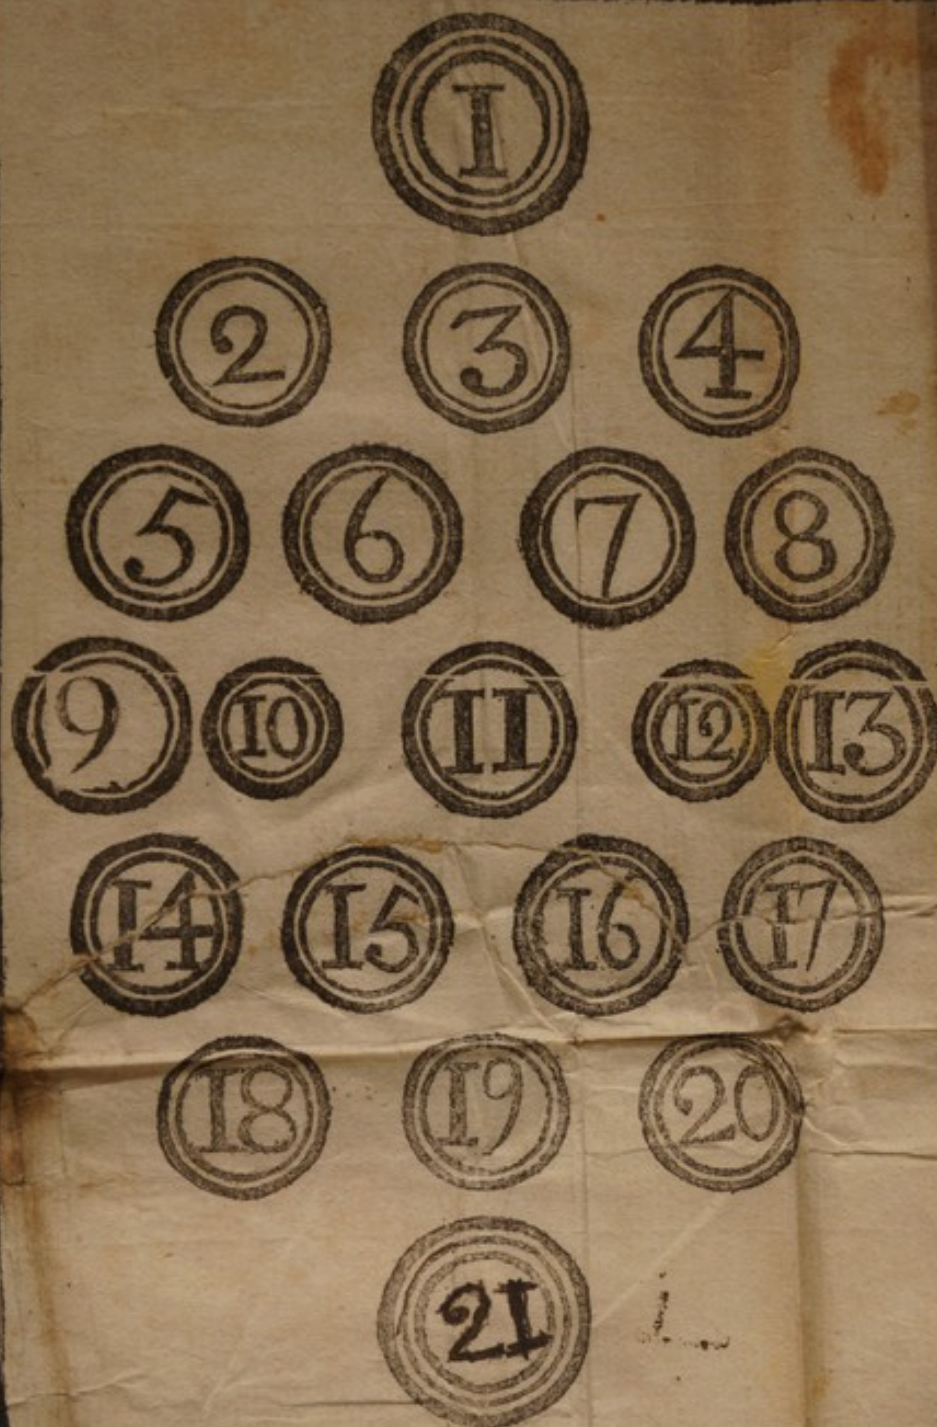 1
2 3 4
5 6 7 8
9 10 11 12 13
14 15 16 17
18 19 20
21